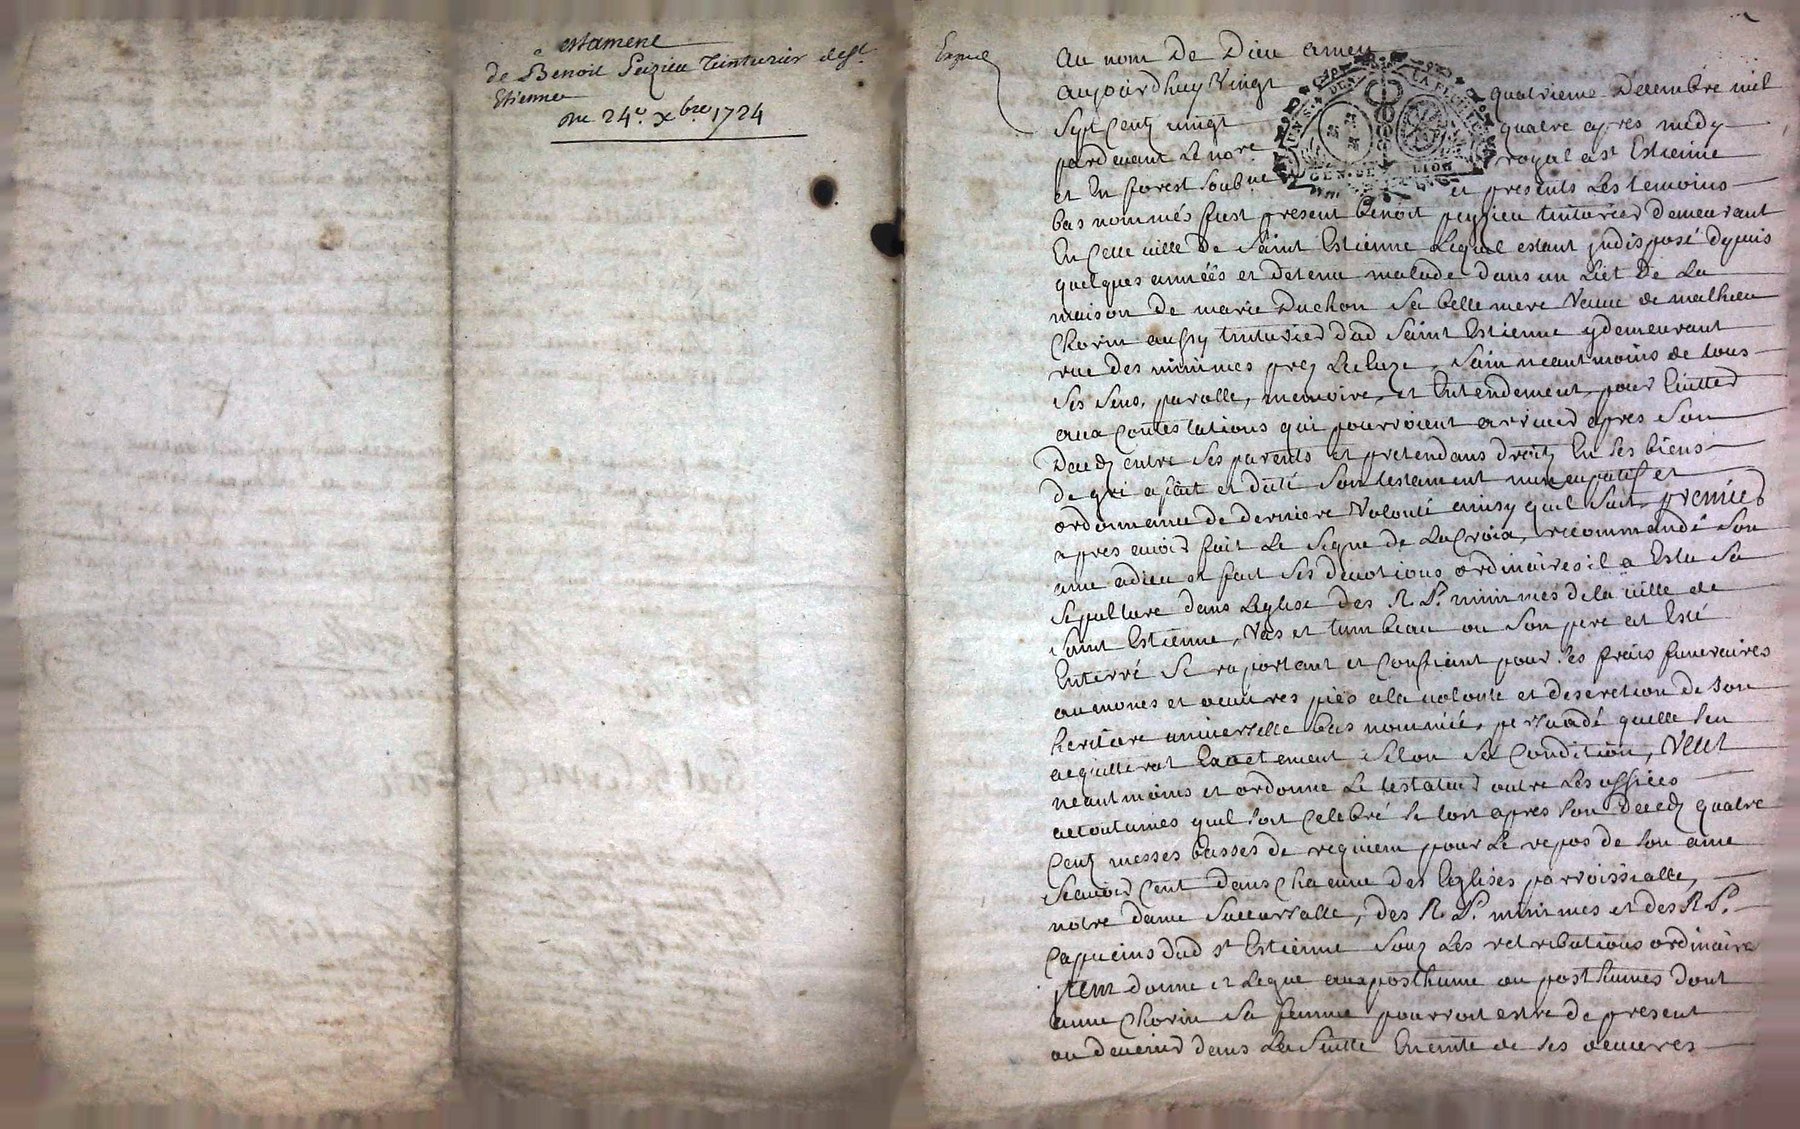 Testament
de Benoit Peizieu Teinturier de St.
Etienne
du 24e. Xbre 1724
Expedié
Au nom De Dieu amen
aujourdhuy Vingt quatrieme Decembre mil
sept Centz vingt quatre apres midy
pardevant Le nore. royal a st Estienne
et En forest soubne et presents Les temoins
bas nommés fust present benoit peyzieu tinturier demeurant
En cette ville De Saint Estienne Lequel estant jndisposé depuis
quelques années et detenu malade dans un Lict De La
maison De marie Duchon Sa belle mere Veuve de mathieu
Chorin aussy tinturier dud Saint Estienne y demeurant
rue des minimes prez Lecluze, Sain neantmoins de tous
Ses Sens, parolle, memoire, et Entendement, pour Eviter
aux Contestations qui pourroient arriver apres Son
Decedz entre Ses parents et pretendans droitz En Ses biens
de gré a fait et dicté Son testament nuncupatif et
ordonnance de derniere Volonté ainsy quil Suit, premier
apres avoir fait Le Signe de La Croix, recommandé Son
ame a dieu et fait Ses devotions ordinaires il a Eslu Sa
Sepulture dans Leglise des R. Ps. minimes de la ville de
Saint Estienne, Vas et tumbeau ou Son pere at Esté
Enterré Se raportant et Confiant pour Ses frais funeraires
aumones et œuvres pies a la volonté et descretion de Son
heritiere universelle bas nommée, persuadé quelle Sen
acquitterat Exactement Selon Sa Condition, Veut
neantmoins et ordonne Le testateur outre Les offices
acoutumes quil soit Celebré Se tost apres Son Decedz quatre
Centz messes basses de requiem pour Le repos de Son ame
Scavoir Cent dans Chacune des Eglises parroissialle,
notre dame Succursalle, des R. Ps. minimes et des R Ps.
Capucins dud st Estienne Souz Les retributions ordinaires
jtem donne et Legue aux posthume ou posthumes dont
anne Chorin Sa femme pourroit estre de present
ou devenir dans La Suitte Enceinte de Ses œuvres
GEN. DE LION